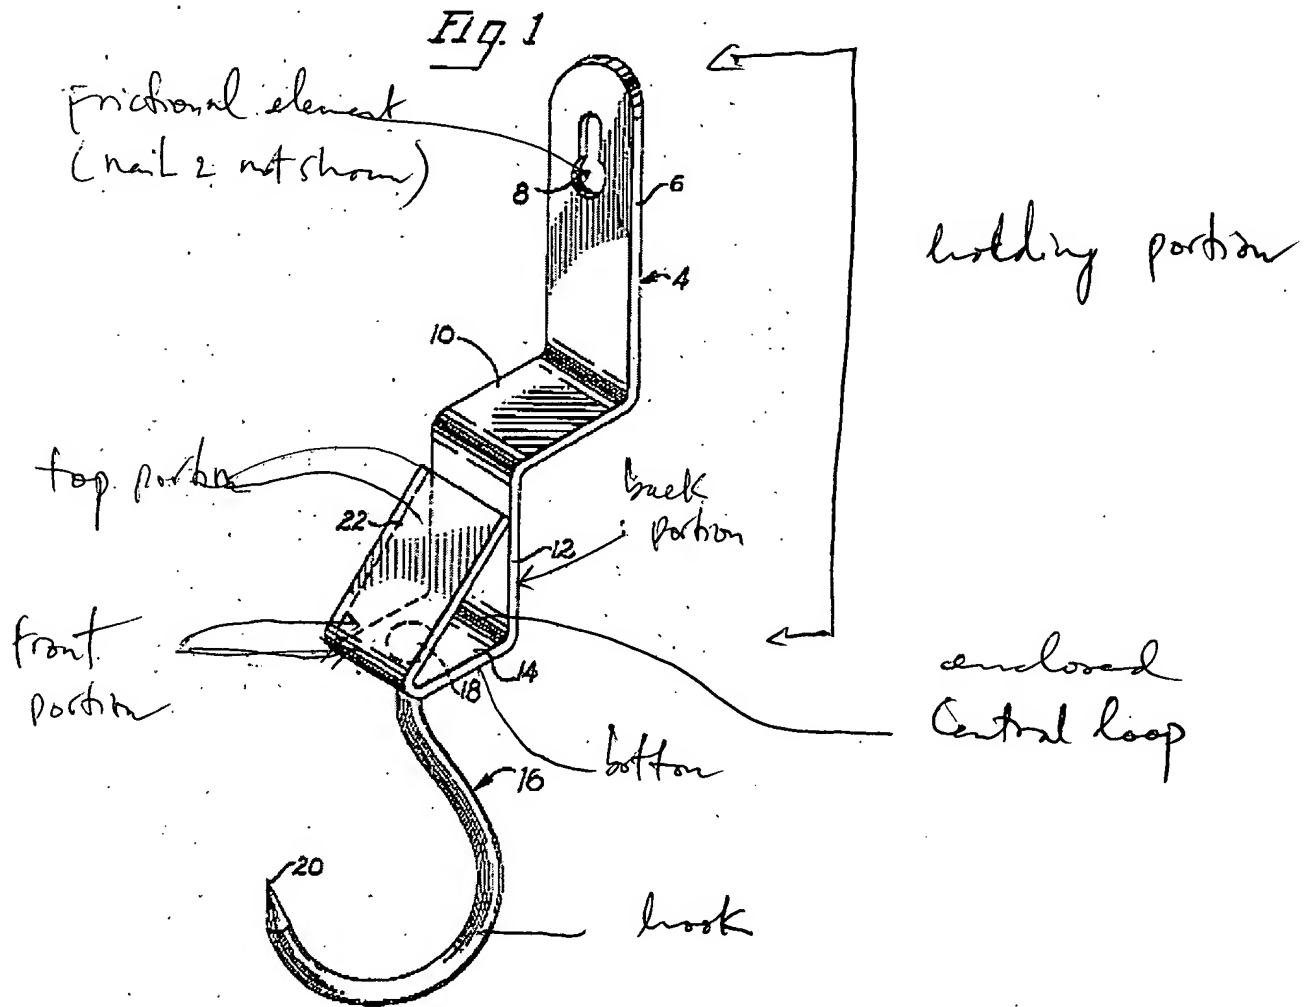 Fig. 1
Frictional element
(nail 2 not shown)
8
6
holding portion
4
10
top portion
22
back
portion
12
front
portion
14
18
enclosed
Central loop
bottom
16
20
hook